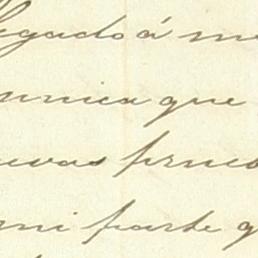 legado á me
unica que
uevas prue
mi parte q